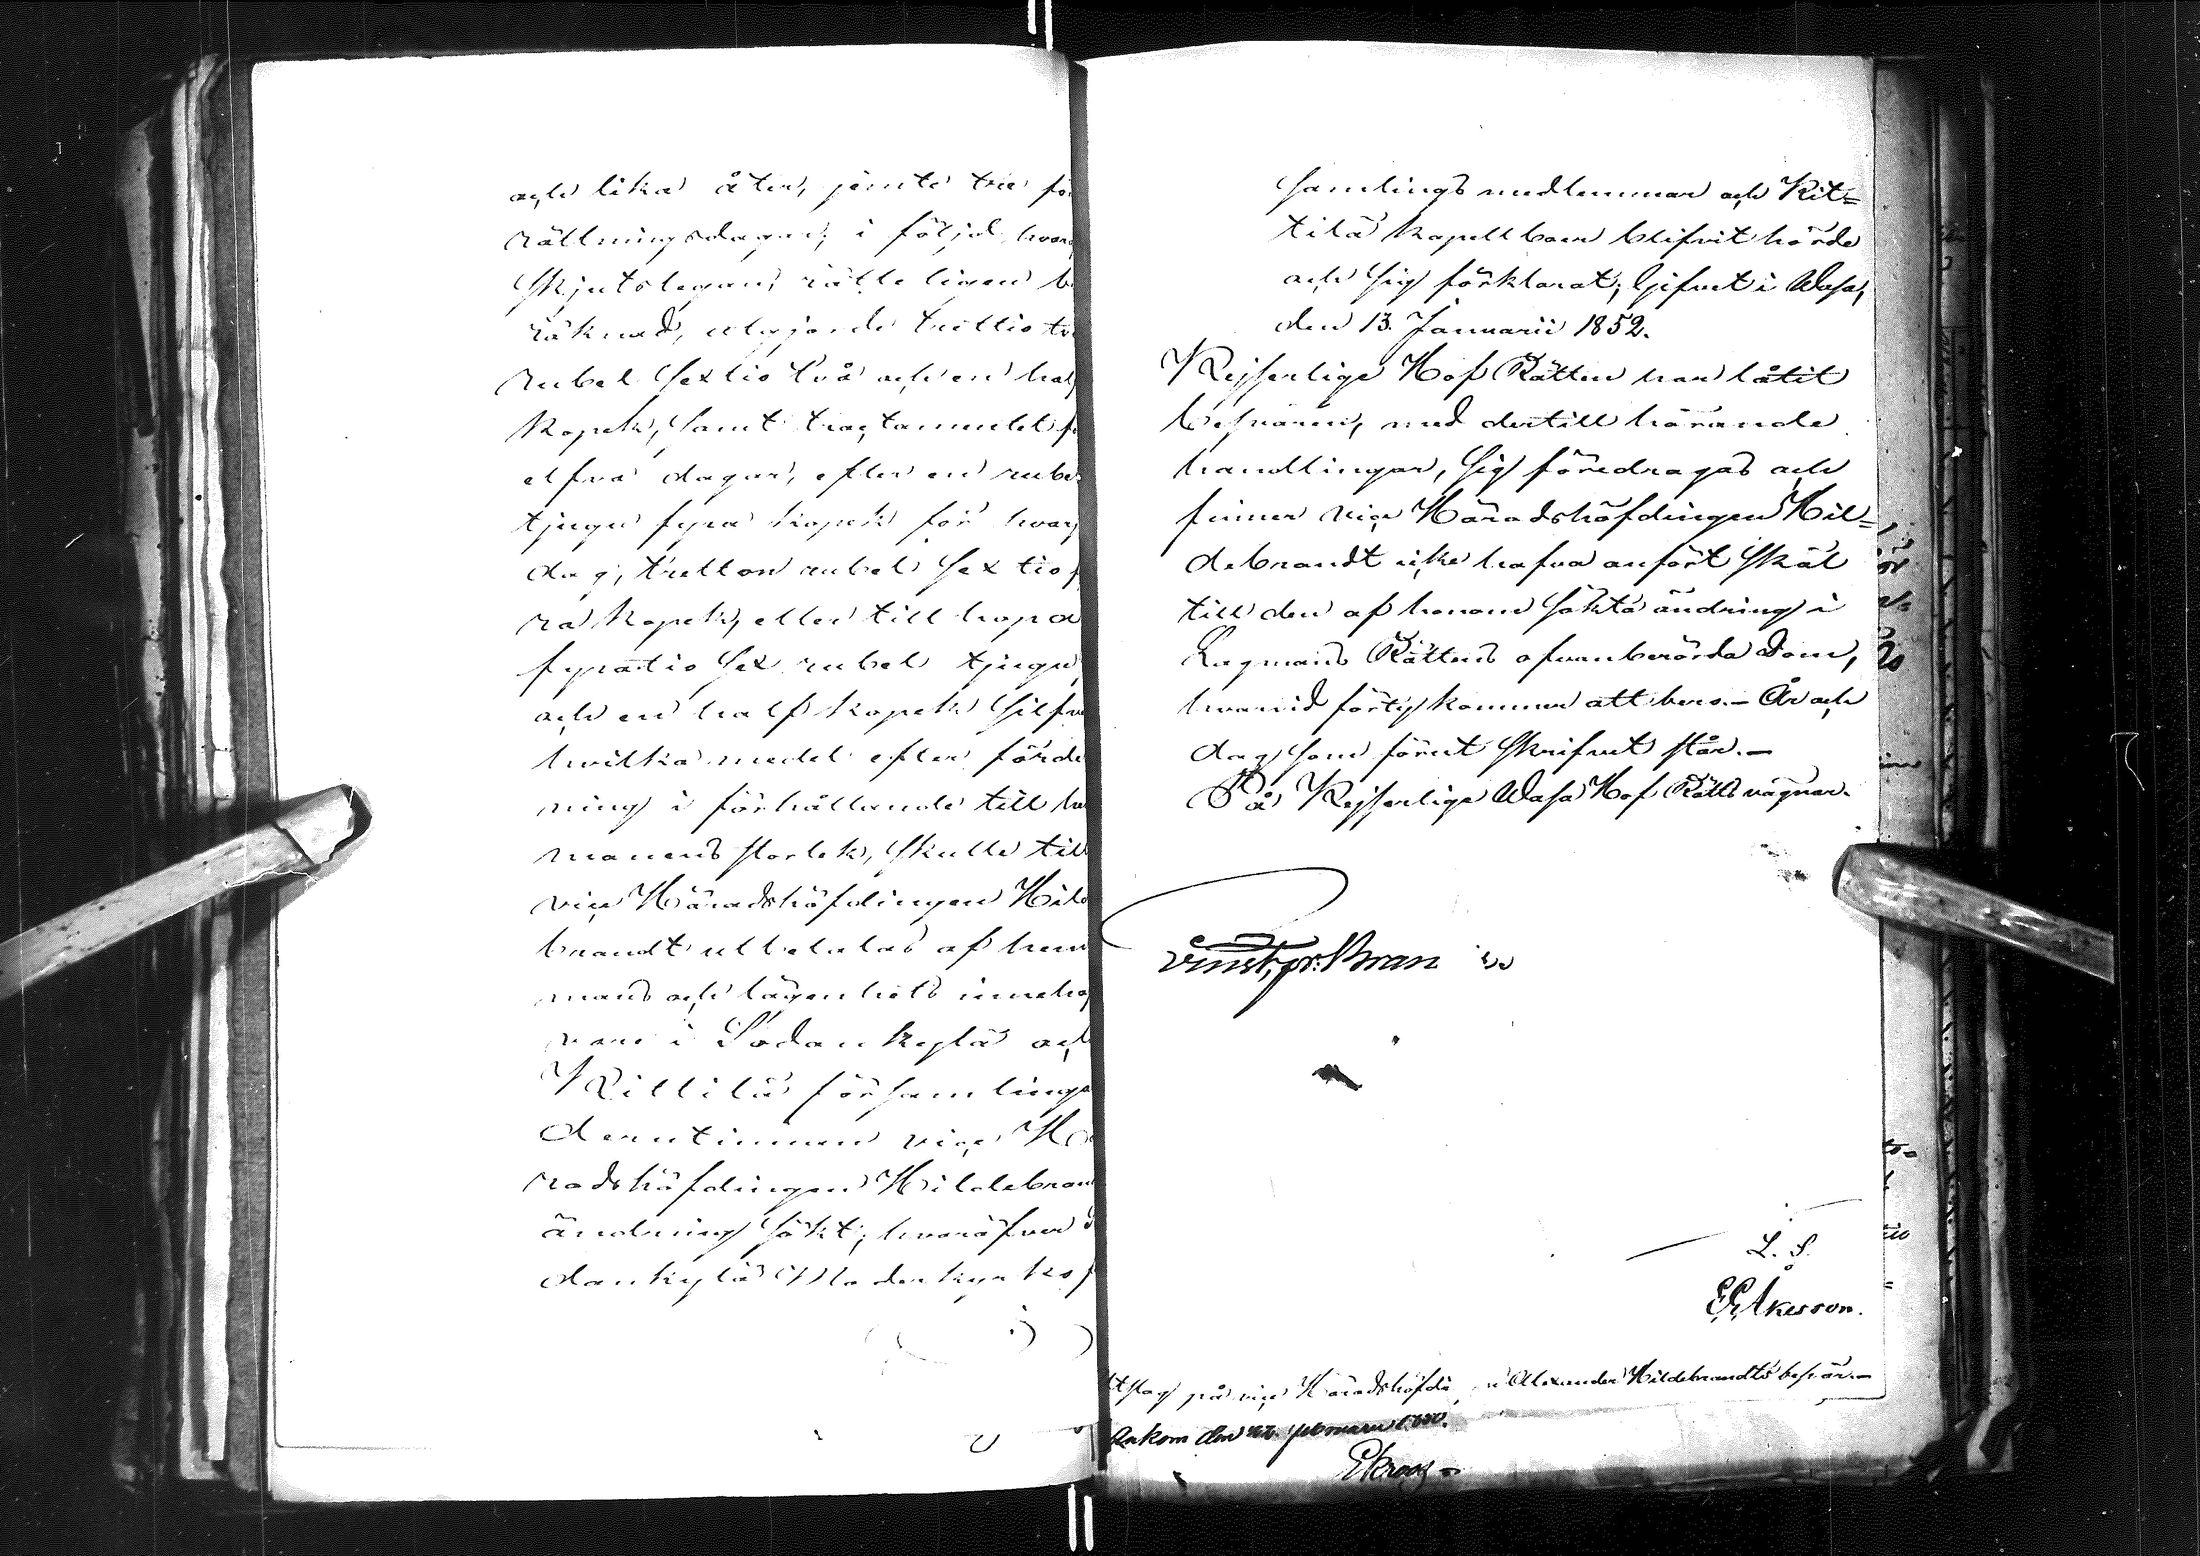 och lika åter, jemte tre fö
rättningsdagar, i följd hvar
Skjutslegan, rätteligen b
räknad, utgjorde trettio tv
rubel Sextio två och en half
kopek, Samt tractamentet f
elfva dagar, efter en rube
tjugu fyra kopek för hvarj
dag, tretton rubel Sextio f
ra kopek, eller till hopa
fyratio Sex rubel tjugu
och en half kopek Silfve
hvilka medel efter förde
ning i förhållande till he
manens storlek, Skulle till
vice Häradshöfdingen Hild
brandt utbetalas af hem
mans och lägenhets inneha
vare i Sodankylä och
Kittilä församlinga
derutinnan vice Hä
radshöfdingen Hildebran
ändring Sökt; hvaröfver S
dankylä Moderkyrkof
Samlings medlemmar och Kit=
tilä kapellboer blifvit hörde
och Sig förklarat; Gifvet i Wasa,
den 13. Januarii 1852.
Kejserlige Hof Rätten har låtit
besvären, med dertill hörande
handlingar, Sig föredragas och
finner vice Häradshöfdingen Hil=
debrandt icke hafva anfört Skäl
till den af honom Sökta ändring i
Lagmans Rättens ofvanberörda Dom,
hvarvid förty kommer att bero.- År och
dag som förut Skrifvet står.-
På Kejserlige Wasa Hof Rätts vägnar.
L. S.
Åkesson.
tslag på vice Häradshöfdi n Alexander Hildebrandts besvär.-
Ankom den Februarii